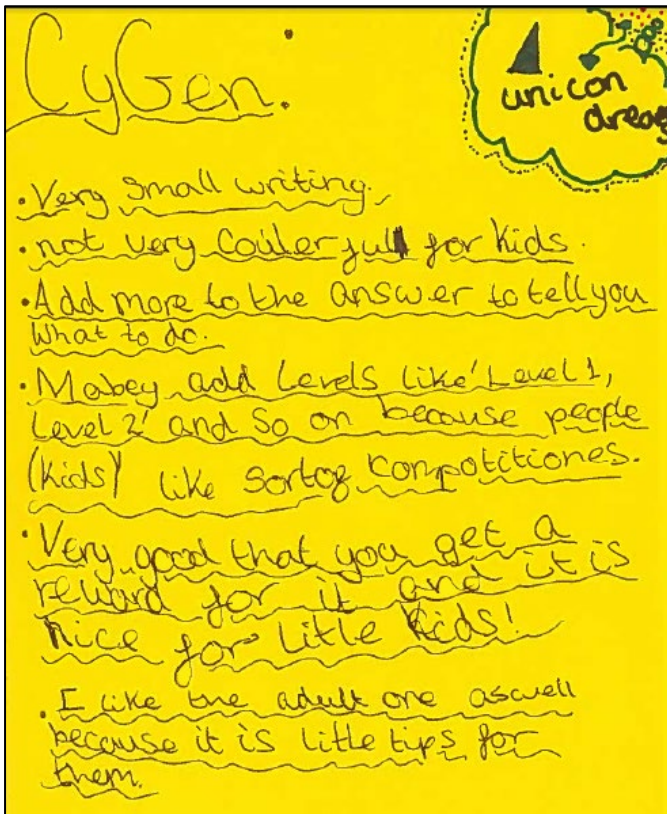 CyGen:
unicon
dreag
• Very small writing.
• not very Coulerfull for kids.
• Add more to the answer to tell you
What to do.
• Mabey add Levels like 'Level 1,
Level 2' and so on because people
(kids) like sortof compotitiones.
• Very good that you get a
reward for it and it is
nice for Little Kids!
• I like the adult one aswell
because it is little tips for
them.